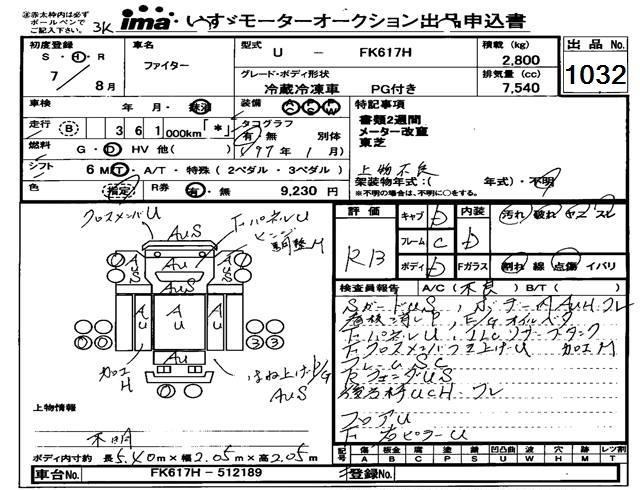 ※赤太枠内は必ず
ボールペンで
ご記入下さい。
3K
ima いすゞモーターオークション出品申込書
初度登録
S・H・R
7/8月
車名
ファイター
型式
U - FK617H
グレード・ボディ形状
冷蔵冷凍車 PG付き
積載 (kg)
2,800
排気量 (cc)
7,540
出品 No.
1032
車検 年・月・抹消
装備 AC PS PW
特記事項
書類2週間
メーター改竄
東芝
走行 B 361,000km 「*」
タコグラフ
有・無 別体
('97年 1月)
燃料 G・D HV 他( )
シフト 6 MT・A/T・特殊 (2ペダル・3ペダル)
上物不良
架装物年式:( 年式)・不明
※不明の場合は、不明に○をする。
色 指定 R券 有・無 9,230 円
クロスメンバU
AuS
FパネルU
ヒンジ
調整M
Au
AuS
AuS
Au
Au
Au
Au
加工
H
はね上げP/G
AuS
上物情報
不明
ボディ内寸約 長5.40m×幅2.05m×高2.05m
評価
RB
キャブ b
フレーム c
ボディ b
内装 b
汚れ 破れ ヤニ スレ
Fガラス 割れ 線 点傷 イバリ
検査員報告 A/C(不良) B/T( )
FパネルU
FクロスメンバU 上げU 加工M
フレームSC
RフェンダUS
フロアU
F右ピラーU
記号 傷 板金 腐 塗 錆 凹凸曲 波 穴 跡 レツ割
A B C P S U W H M T
車台No. FK617H - 512189
登録No.